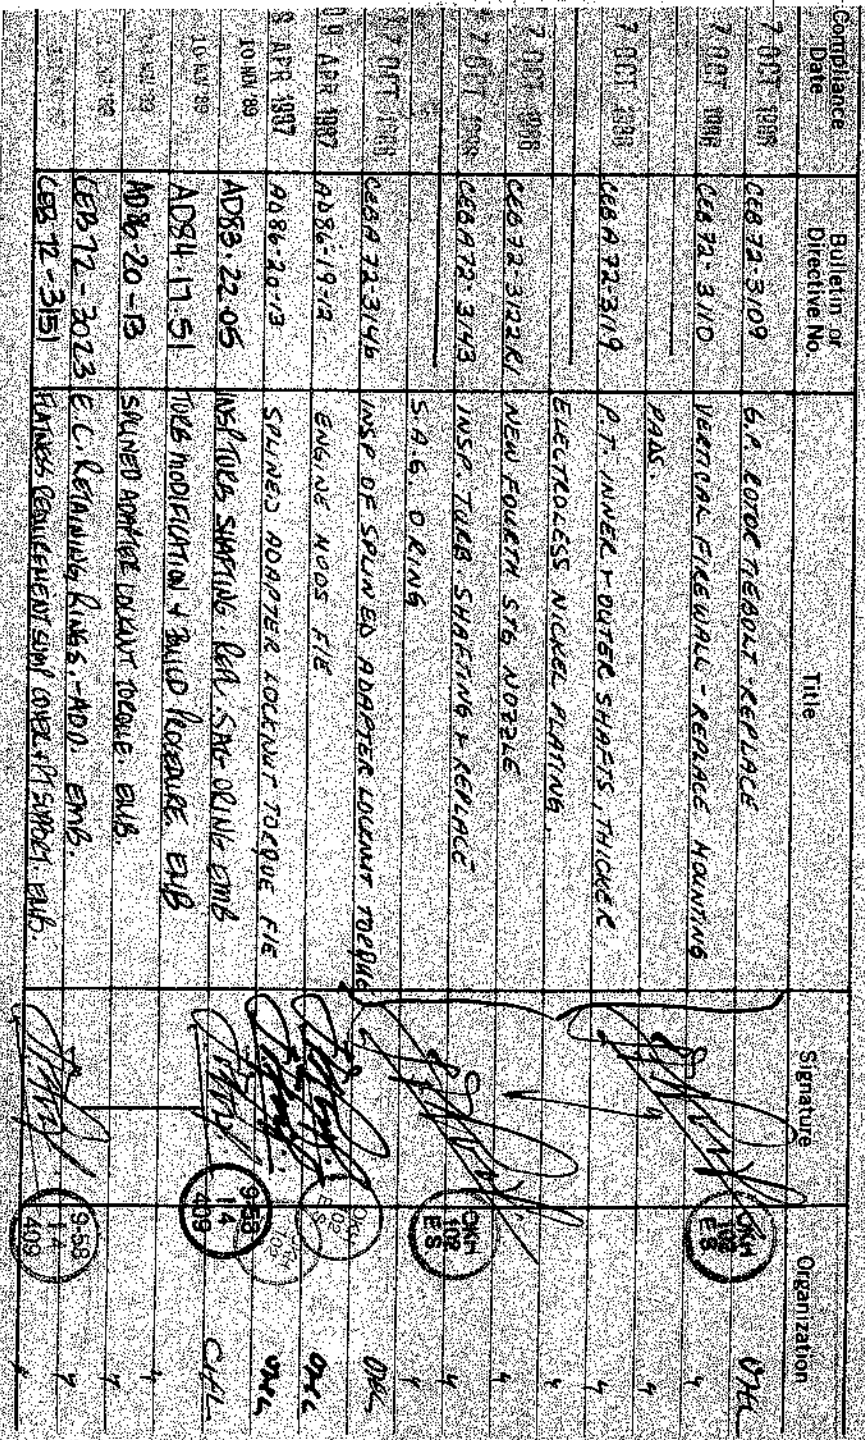 Compliance Date
Bulletin or Directive No.
Title
Signature
Organization
7 OCT CEB 72-3109 G.P. ROTOR TIEBOLT - REPLACE OHL
7 OCT CEB 72-3110 VERTICAL FIREWALL - REPLACE MOUNTING "
PADS. "
7 OCT CEB A 72 3119 P.T. INNER + OUTER SHAFTS, THICKER "
ELECTROLESS NICKEL PLATING. "
7 OCT CEB 72-3122R1 NEW FOURTH STG NOZZLE "
7 OCT CEB A72-3143 INSP. TURB SHAFTING & REPLACE "
S.A.G. O RING "
7 OCT CEB A 72 3146 INSP OF SPLINED ADAPTER LOCKNUT TORQUE OHL
09 APR 1987 AD86-19-12 ENGINE MODS FIE OHL
9 APR 1987 AD86-20-13 SPLINED ADAPTER LOCKNUT TORQUE FIE OHL
10 NOV 89 AD83-22-05 INSP TURB SHAFTING SAG ORING EMB CHAL
10 NOV 89 AD84-17-51 TURB MODIFICATION + BUILD PROCEDURE EMB "
AD86-20-13 SPLINED ADAPTER LOCKNUT TORQUE. EMB. "
CEB 72-3023 E.C. RETAINING RINGS. - ADD. EMB. "
CEB 72-3151 FLATNESS REQUIREMENT SUMP COVER + PT SUPPORT. EMB. "
OKH
102
ES
OKH
102
ES
OKH
102
ES
9-58
14
409
9-58
14
409